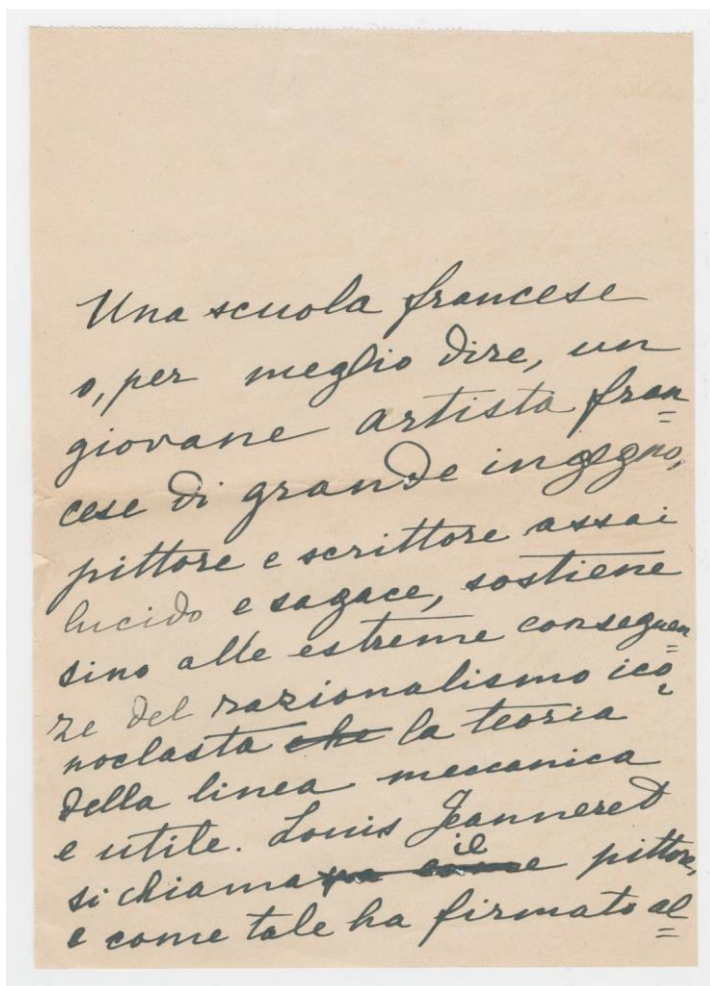 Una scuola francese
o, per meglio dire, un
giovane artista fran=
cese di grande ingegno,
pittore e scrittore assai
lucido e sagace, sostiene
sino alle estreme conseguen=
ze del razionalismo ico=
noclasta che la teoria
della linea meccanica
e utile. Louis Jeanneret
si chiama il pittore,
e come tale ha firmato al=